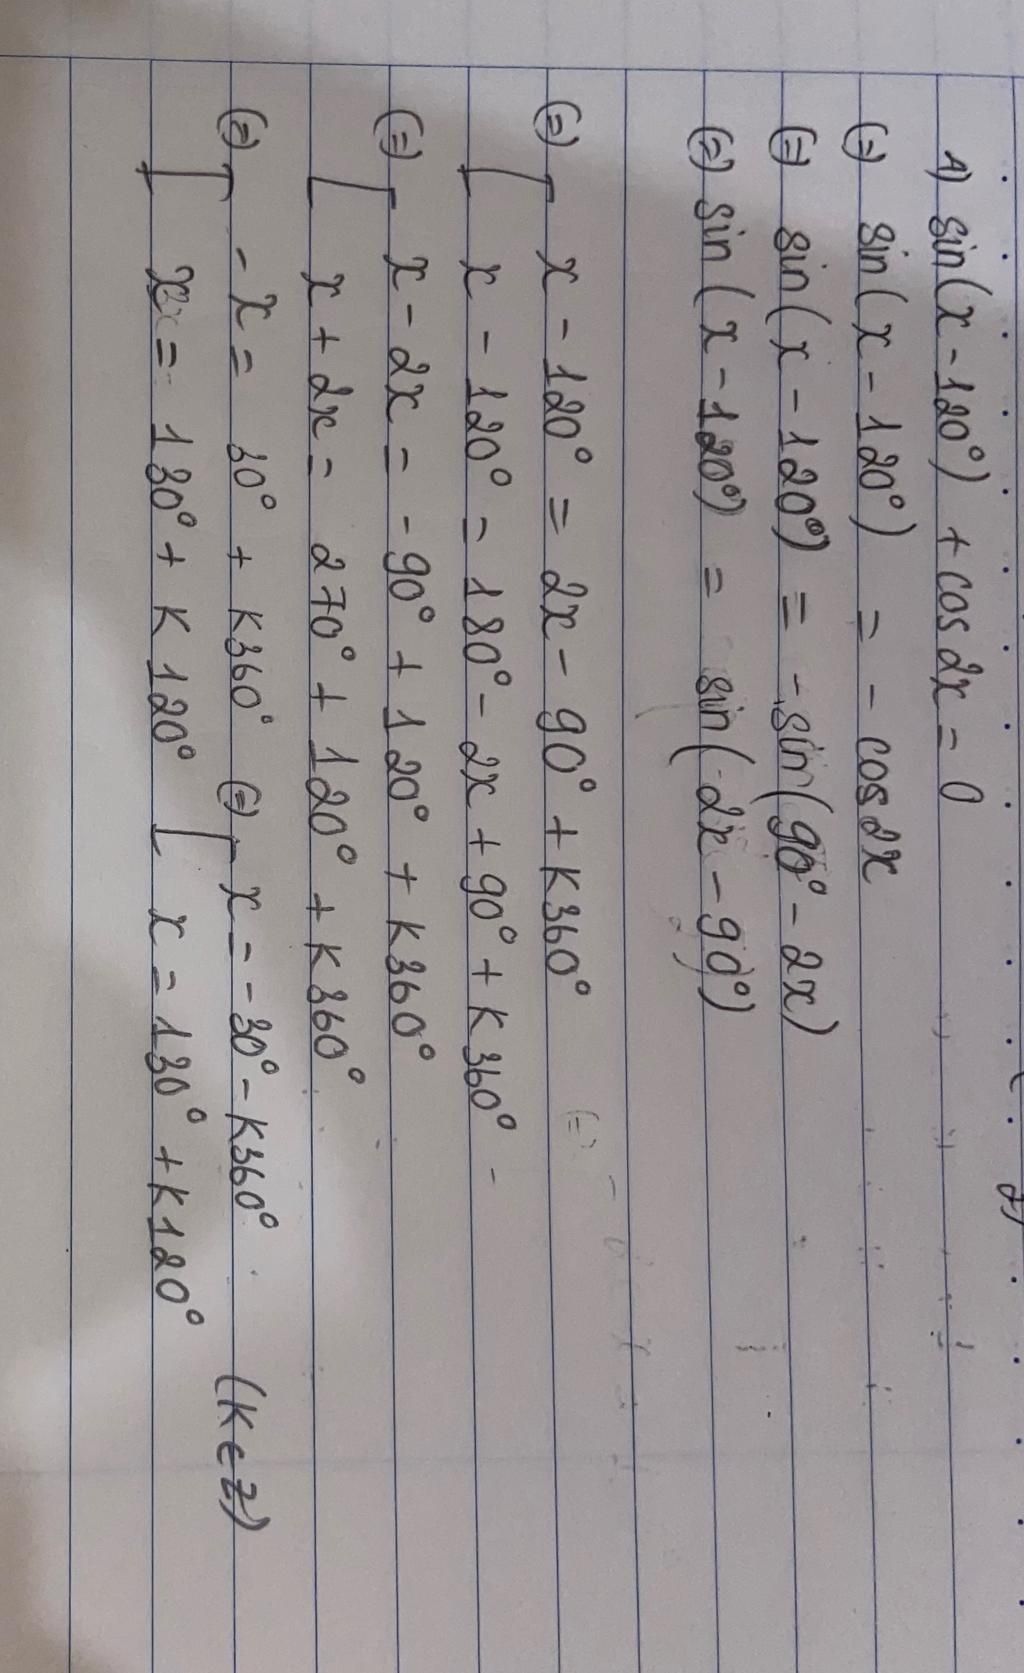 A) sin(x - 120°) + cos 2x = 0
(=) sin(x - 120°) = - cos 2x
(=) sin(x - 120°) = - sin(90° - 2x)
(=) sin(x - 120°) = sin(2x - 90°)
(=) [ x - 120° = 2x - 90° + K360°
[ x - 120° = 180° - 2x + 90° + K360°
(=) [ x - 2x = -90° + 120° + K360°
[ x + 2x = 270° + 120° + K360°
(=) [ - x = 30° + K360° (=) [ x = -30° - K360° (K ∈ Z)
[ x = 130° + K120° [ x = 130° + K120°